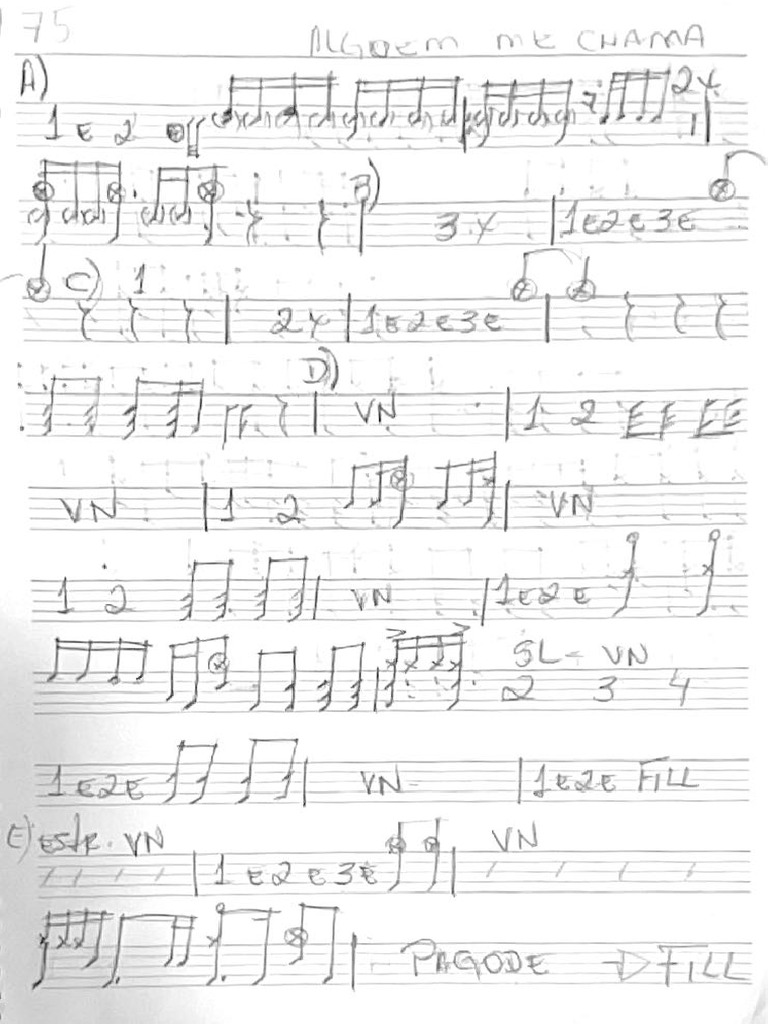 75 ALGUEM ME CHAMA
A)
1 E 2 2X
B) 3X 1E2E3E
C) 1 2X 1E2E3E
D) VN 1 2
VN 1 2 VN
1 2 VN 1E2E
SL - VN
2 3 4
1E2E VN 1E2E FILL
E) ESTR. VN VN
1E2E3E
PAGODE → FILL